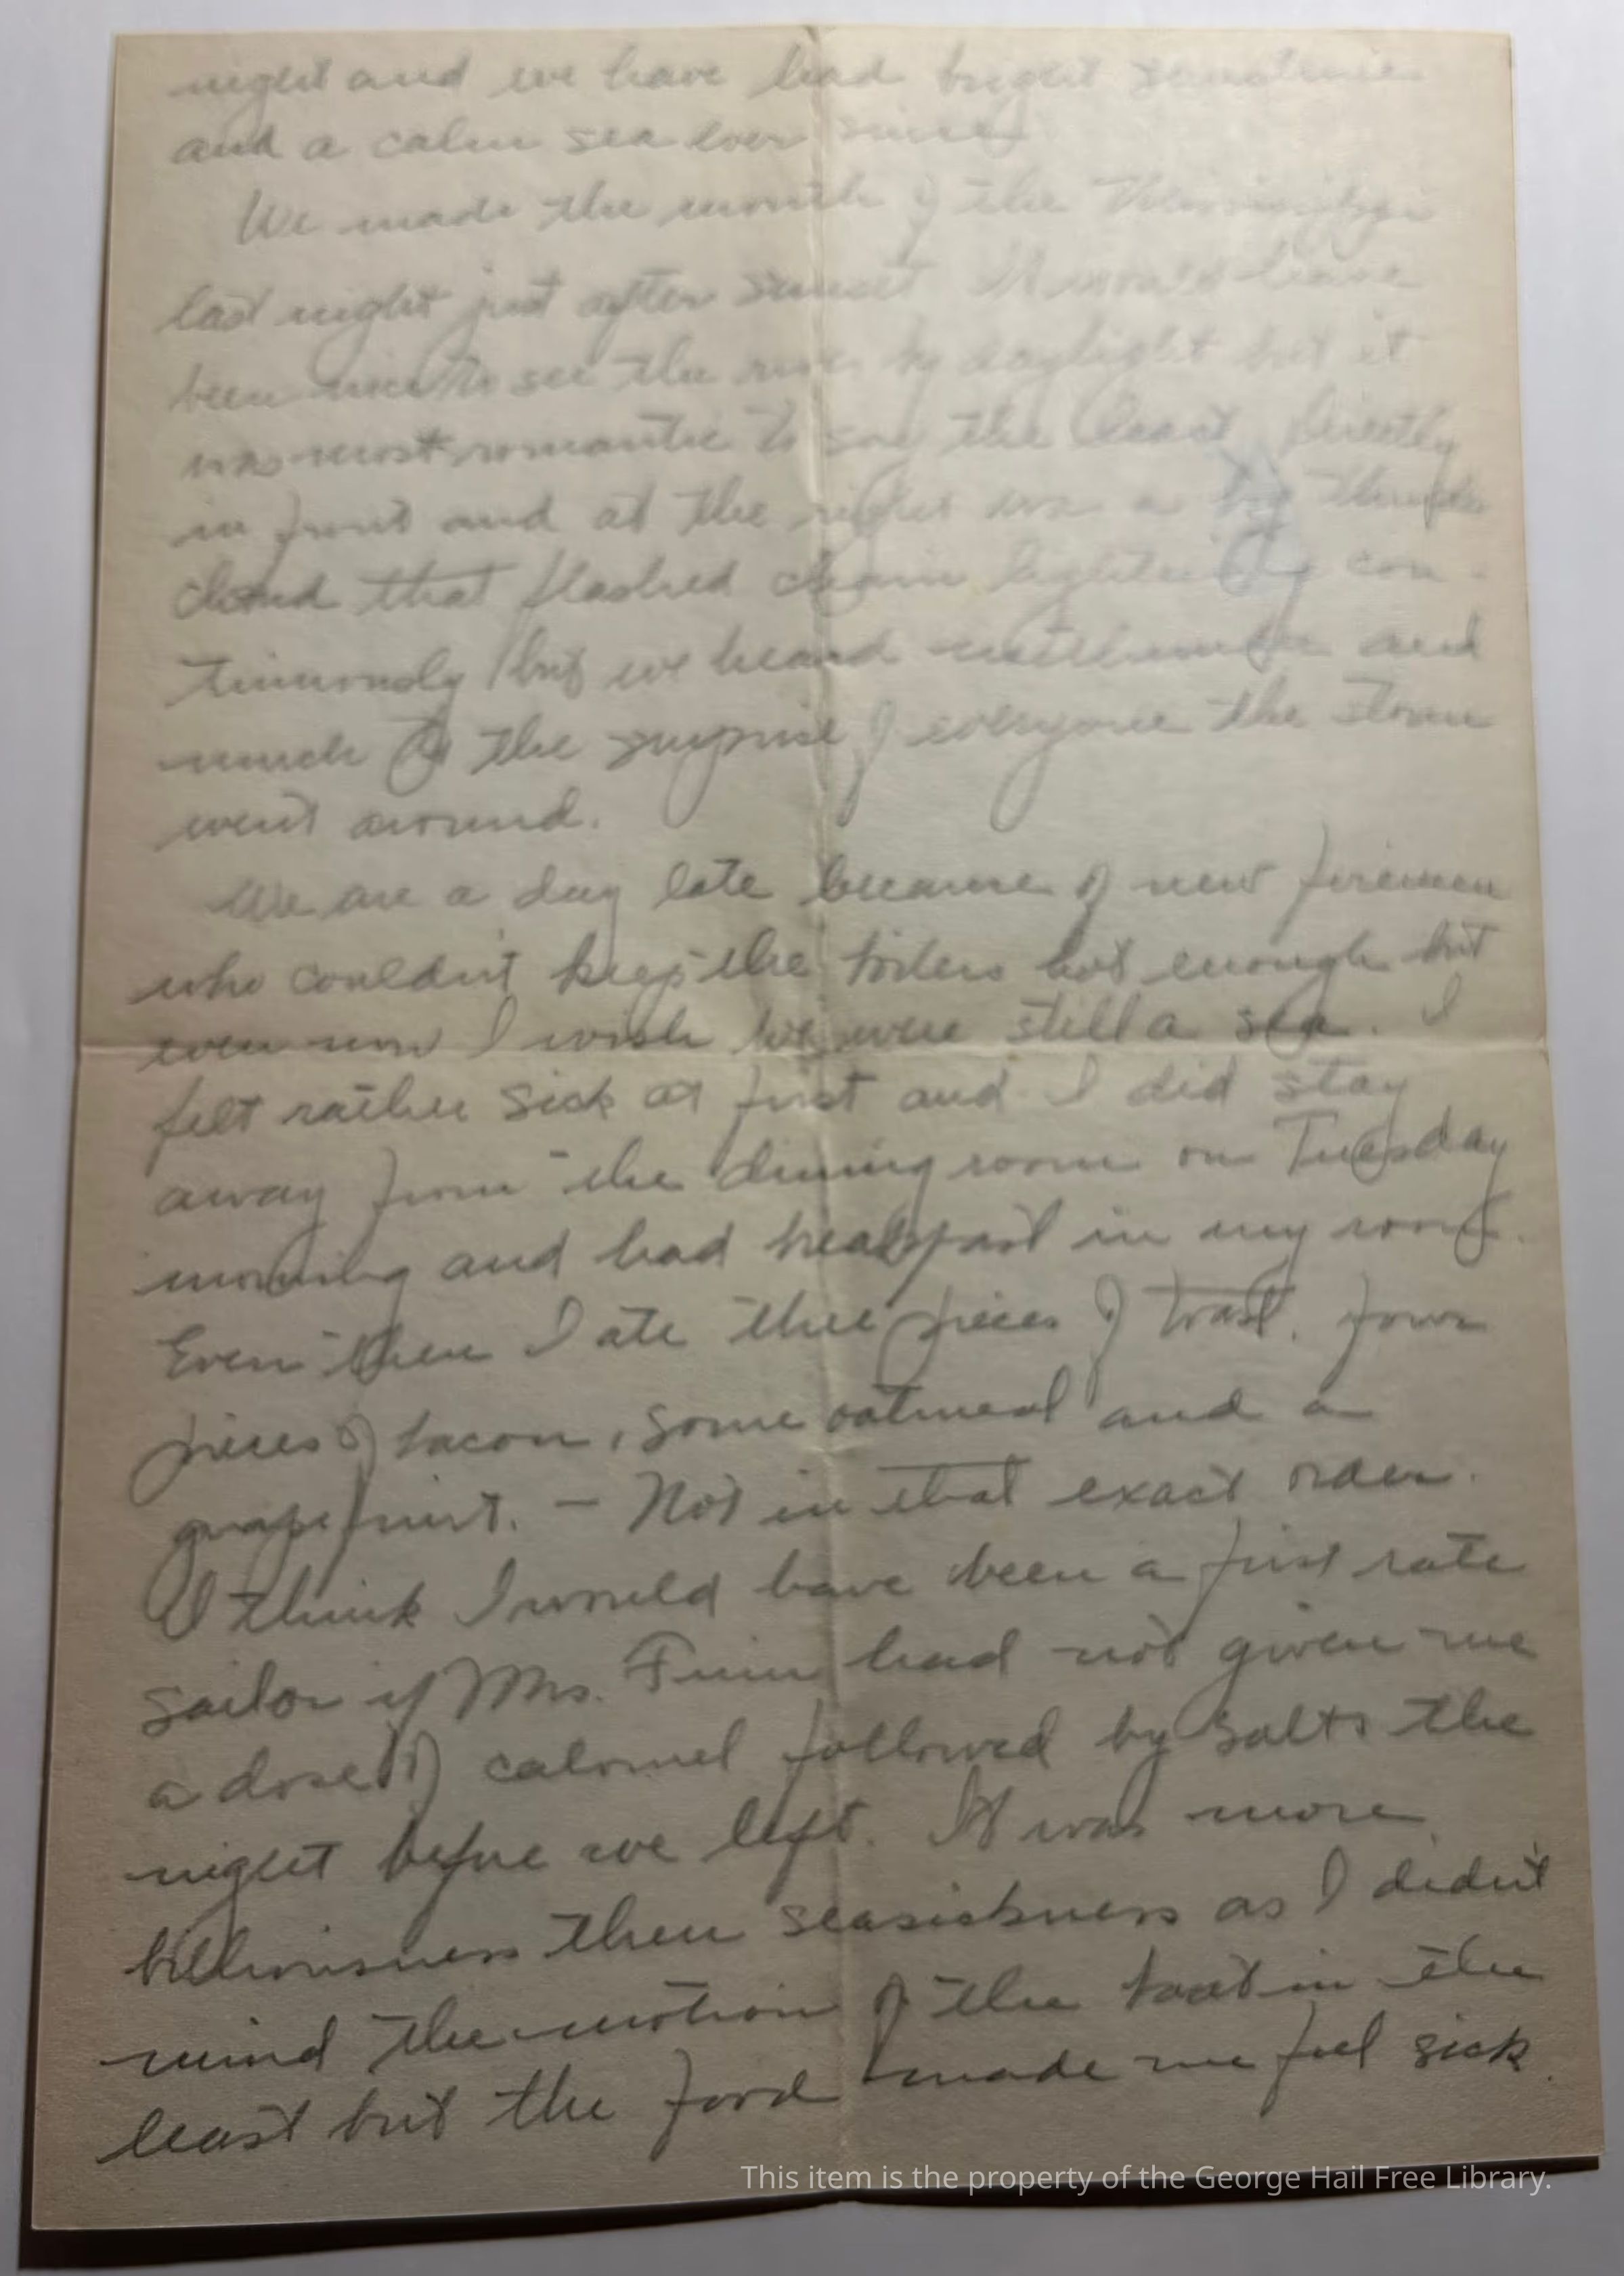 night and we have had bright sunshine
and a calm sea ever since
We made the mouth of the Mississippi
last night just after sunset It would have
been nice to see the river by daylight but it
was most romantic to say the least, directly
in front and at the right was a big thunder
cloud that flashed chain lightening con-
tinuously but we heard no thunder and
much to the surprise of everyone the storm
went around.
We are a day late because of new firemen
who couldn't keep the boilers hot enough but
even now I wish we were still a sea. I
felt rather sick at first and I did stay
away from the dining room on Tuesday
morning and had breakfast in my room.
Even then I ate three pieces of toast, four
pieces of bacon, some oatmeal and a
grapefruit. — Not in that exact order.
I think I would have been a first rate
sailor if Mrs. had not given me
a dose of calomel followed by salts the
night before we left. It was more
billiousness then seasickness as I didn't
mind the motion of the boat in the
least but the food made me feel sick.
This item is the property of the George Hail Free Library.